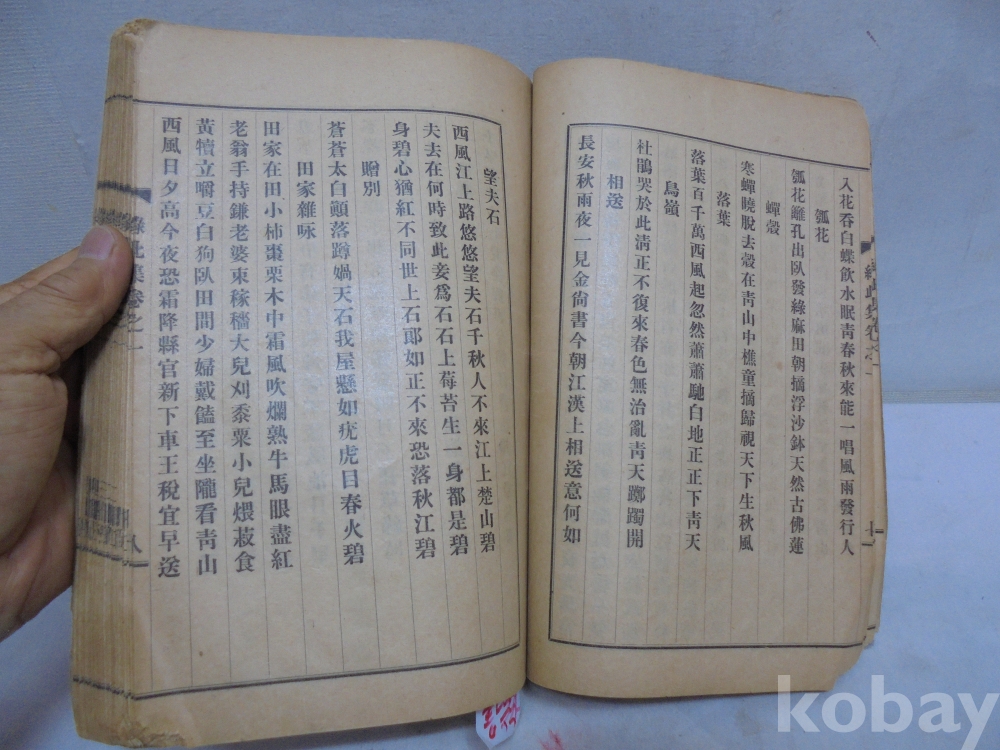 入花呑白蝶飮水眠靑春秋來能一唱風雨發行人
瓠花
瓠花離孔出臥發綠麻田朝摘浮沙鉢天然古佛蓮
蟬殼
寒蟬曉脫去殼在靑山中樵童摘歸視天下生秋風
落葉
落葉百千萬西風起忽然蕭蕭馳白地正正下靑天
鳥嶺
杜鵑哭於此淸正不復來春色無治亂靑天躑躅開
相送
長安秋雨夜一見金尙書今朝江漢上相送意何如
望夫石
西風江上路悠悠望夫石千秋人不來江上楚山碧
夫去在何時致此妾爲石石上莓苔生一身都是碧
身碧心猶紅不同世上石郞如正不來恐落秋江碧
贈別
蒼蒼太白顚落蹲媧天石我屋懸如疣虎目春火碧
田家雜咏
田家在田小柿棗栗木中霜風吹爛熟牛馬眼盡紅
老翁手持鎌老婆束稼穡大兒刈黍粟小兒煨菽食
黃犢立嚼豆白狗臥田間少婦戴饁至坐隴看靑山
西風日夕高今夜恐霜降縣官新下車王稅宜早送
此集卷之一
八
kobay